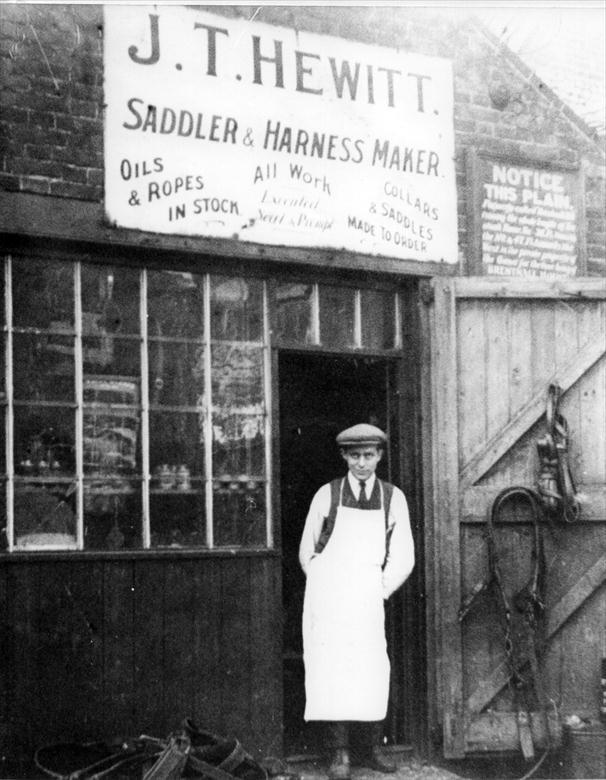 J. T. HEWITT.
SADDLER & HARNESS MAKER.
OILS
& ROPES
IN STOCK
All Work
Executed
Neat & Prompt
COLLARS
& SADDLES
MADE TO ORDER
NOTICE
THIS PLAN.